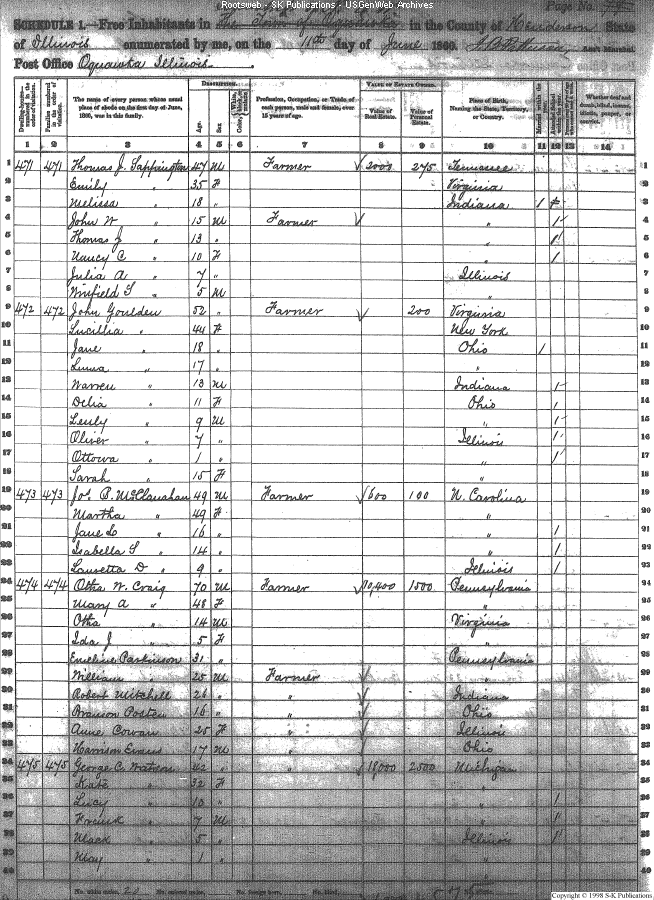 Rootsweb - SK Publications - USGenWeb Archives
Page No.
SCHEDULE 1.—Free Inhabitants in The Town of in the County of Henderson State
of Illinois enumerated by me, on the 11th day of June 1860. Ass't Marshal.
Post Office Oquawka Illinois.
Dwelling-houses numbered in the order of visitation. Families numbered in the order of visitation. The name of every person whose usual place of abode on the first day of June, 1860, was in this family. DESCRIPTION. Age. Sex. Color Profession, Occupation, or Trade of each person, male and female, over 15 years of age. VALUE OF ESTATE OWNED. Value of Real Estate. Value of Personal Estate. Place of Birth, Naming the State, Territory, or Country. Married within the Whether deaf and dumb, blind, insane, idiotic, pauper, or convict.
1 2 3 4 5 6 7 8 9 10 11 12 13 14
1 471 471 Thomas J. Sappington 47 M Farmer 2000 275 Tennessee 1
2 Emily " 35 F Virginia 2
3 Melissa " 18 " Indiana 1 3
4 John W " 15 M Farmer " 1 4
5 Thomas J " 13 " " 1 5
6 Nancy C " 10 F " 1 6
7 Julia A " 7 " Illinois 7
8 Winfield S " 5 M " 8
9 472 472 John Goulden 52 " Farmer 200 Virginia 9
10 Lucillia " 44 F New York 10
11 Jane " 18 " Ohio 1 11
12 " 17 " " 12
13 Warren " 13 M Indiana 1 13
14 Delia " 11 F Ohio 1 14
15 " 9 M " 1 15
16 Oliver " 7 " Illinois 1 16
17 Ottowa " 1 " " 1 17
18 Sarah " 15 F 18
19 473 473 Jos. B. McClanahan 49 M Farmer 600 100 N. Carolina 19
20 Martha " 49 F " 20
21 Jane L " 16 " " 1 21
22 Isabella S " 14 " " 1 22
23 Lauretta D " 9 " Illinois 1 23
24 474 474 Otha W. Craig 70 M Farmer 10,400 1500 Pennsylvania 24
25 Mary A " 48 F " 25
26 Otha " 14 M Virginia 26
27 Ida J " 5 F " 27
28 Emeline Parkinson 31 " Pennsylvania 28
29 William " 25 M Farmer " 29
30 Robert Mitchell 26 " " Indiana 30
31 Branson Posten 16 " " Ohio 31
32 Anne Cowan 25 F " Illinois 32
33 Harrison Evans 17 M " Ohio 33
34 475 475 George C. Watson 42 " " 18,000 2500 Michigan 34
35 Kate " 32 F " 35
36 Lucy " 10 " " 1 36
37 " 7 M " 1 37
38 Mack " 5 " Illinois 1 38
39 May " 1 " " 39
40 40
No. white males, No. colored males, No. foreign born, No. blind,
Copyright © 1998 S-K Publications